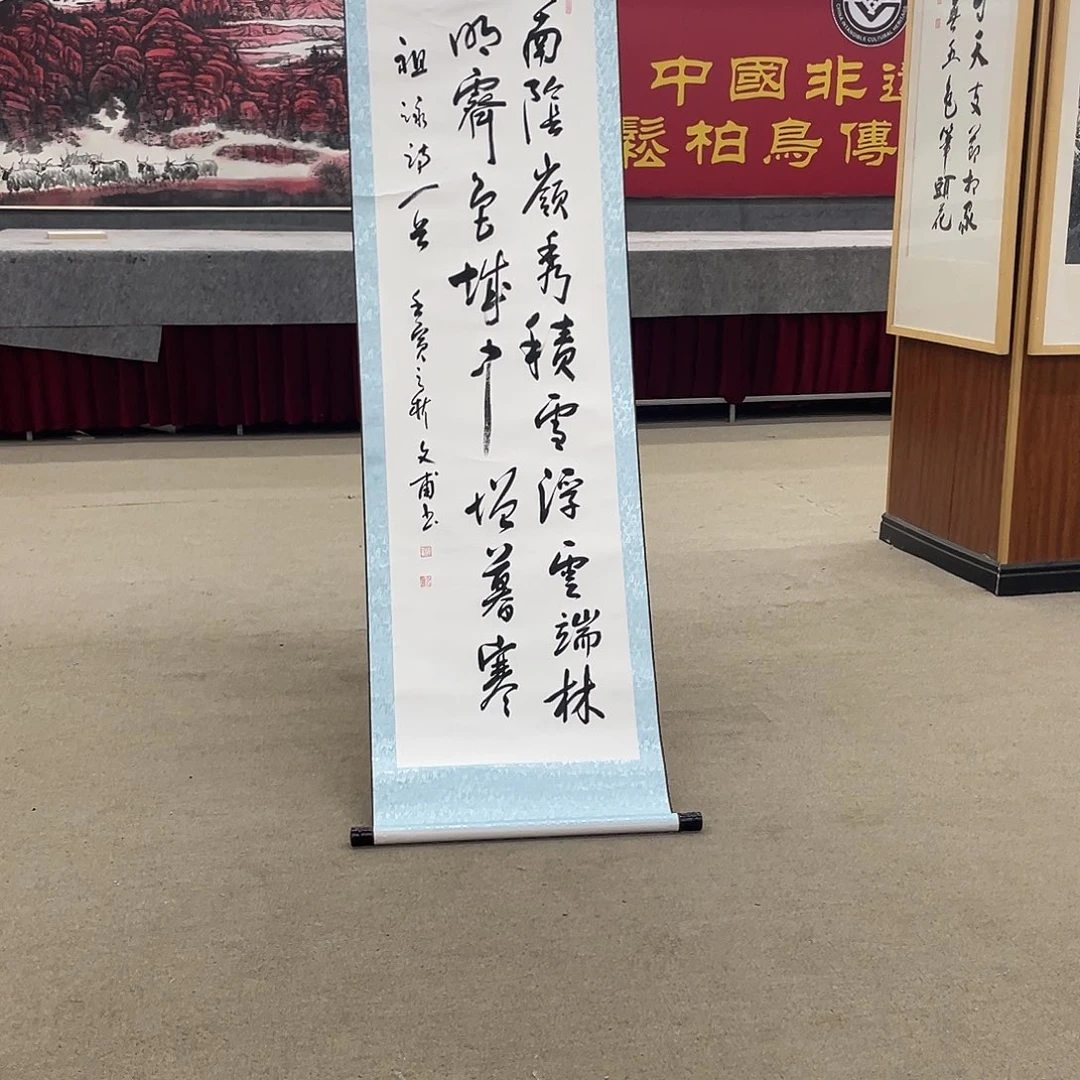 南陰嶺秀積雪浮雲端林
明霽色城中增暮寒
祖詠詩一首
壬寅之秋文甫書
中國非
鬆柏鳥傳
五色筆頭花